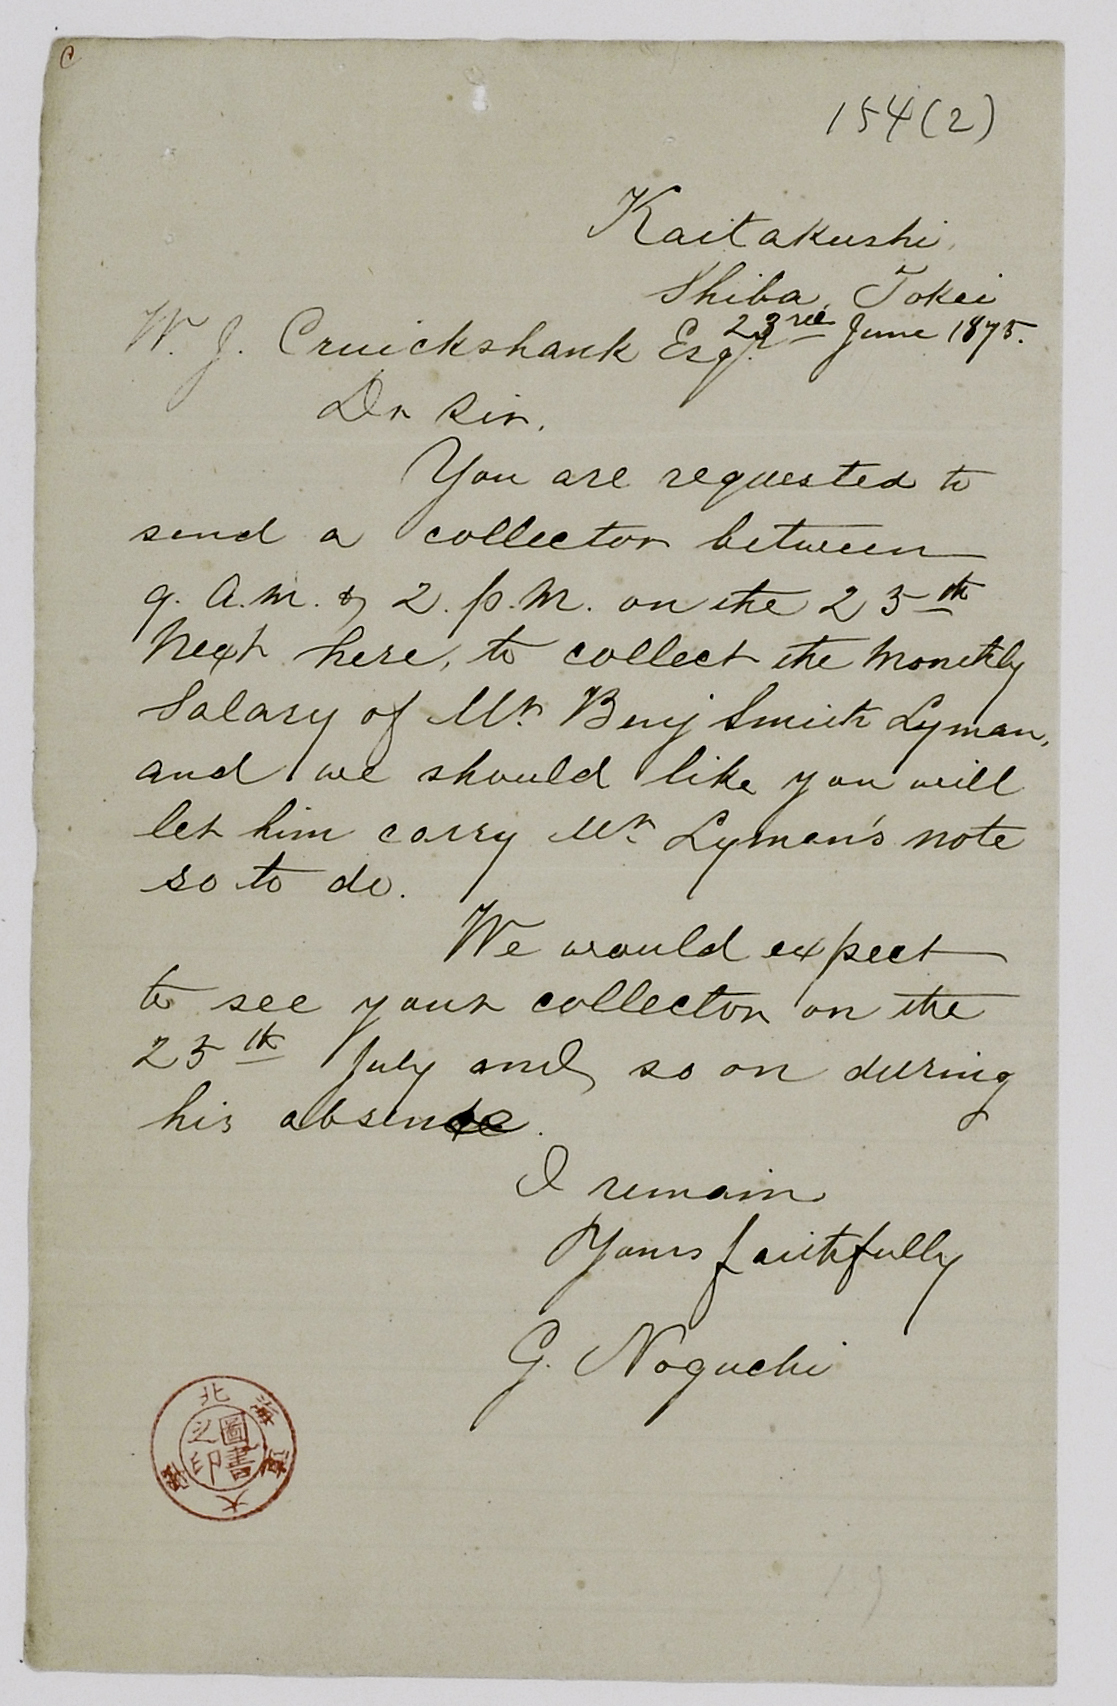 154(2)
Kaitakushi,
Shiba, Tokei
23rd June 1875.
W. J. Cruickshank Esqr.
Dr Sir,
You are requested to
send a collector between
9. A.M. & 2. p.M. on the 25th
Next here, to collect the Monthly
Salary of Mr Benj Smith Lyman,
and we should like you will
let him carry Mr Lyman's note
so to do.
We would expect
to see your collector on the
25th July and so on during
his absence.
I remain
Yours faithfully
G. Noguchi
北海道大學
圖書
之印